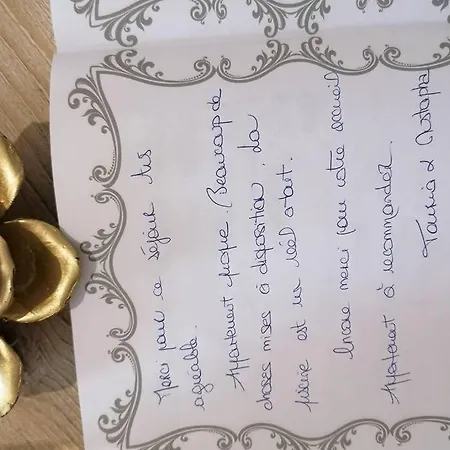 Merci pour ce séjour très
agréable.
Appartement propre. Beaucoup de
choses mises à disposition. La
piscine est un réel atout.
Encore merci pour votre accueil
Appartement à recommander.
Tania & Mustapha